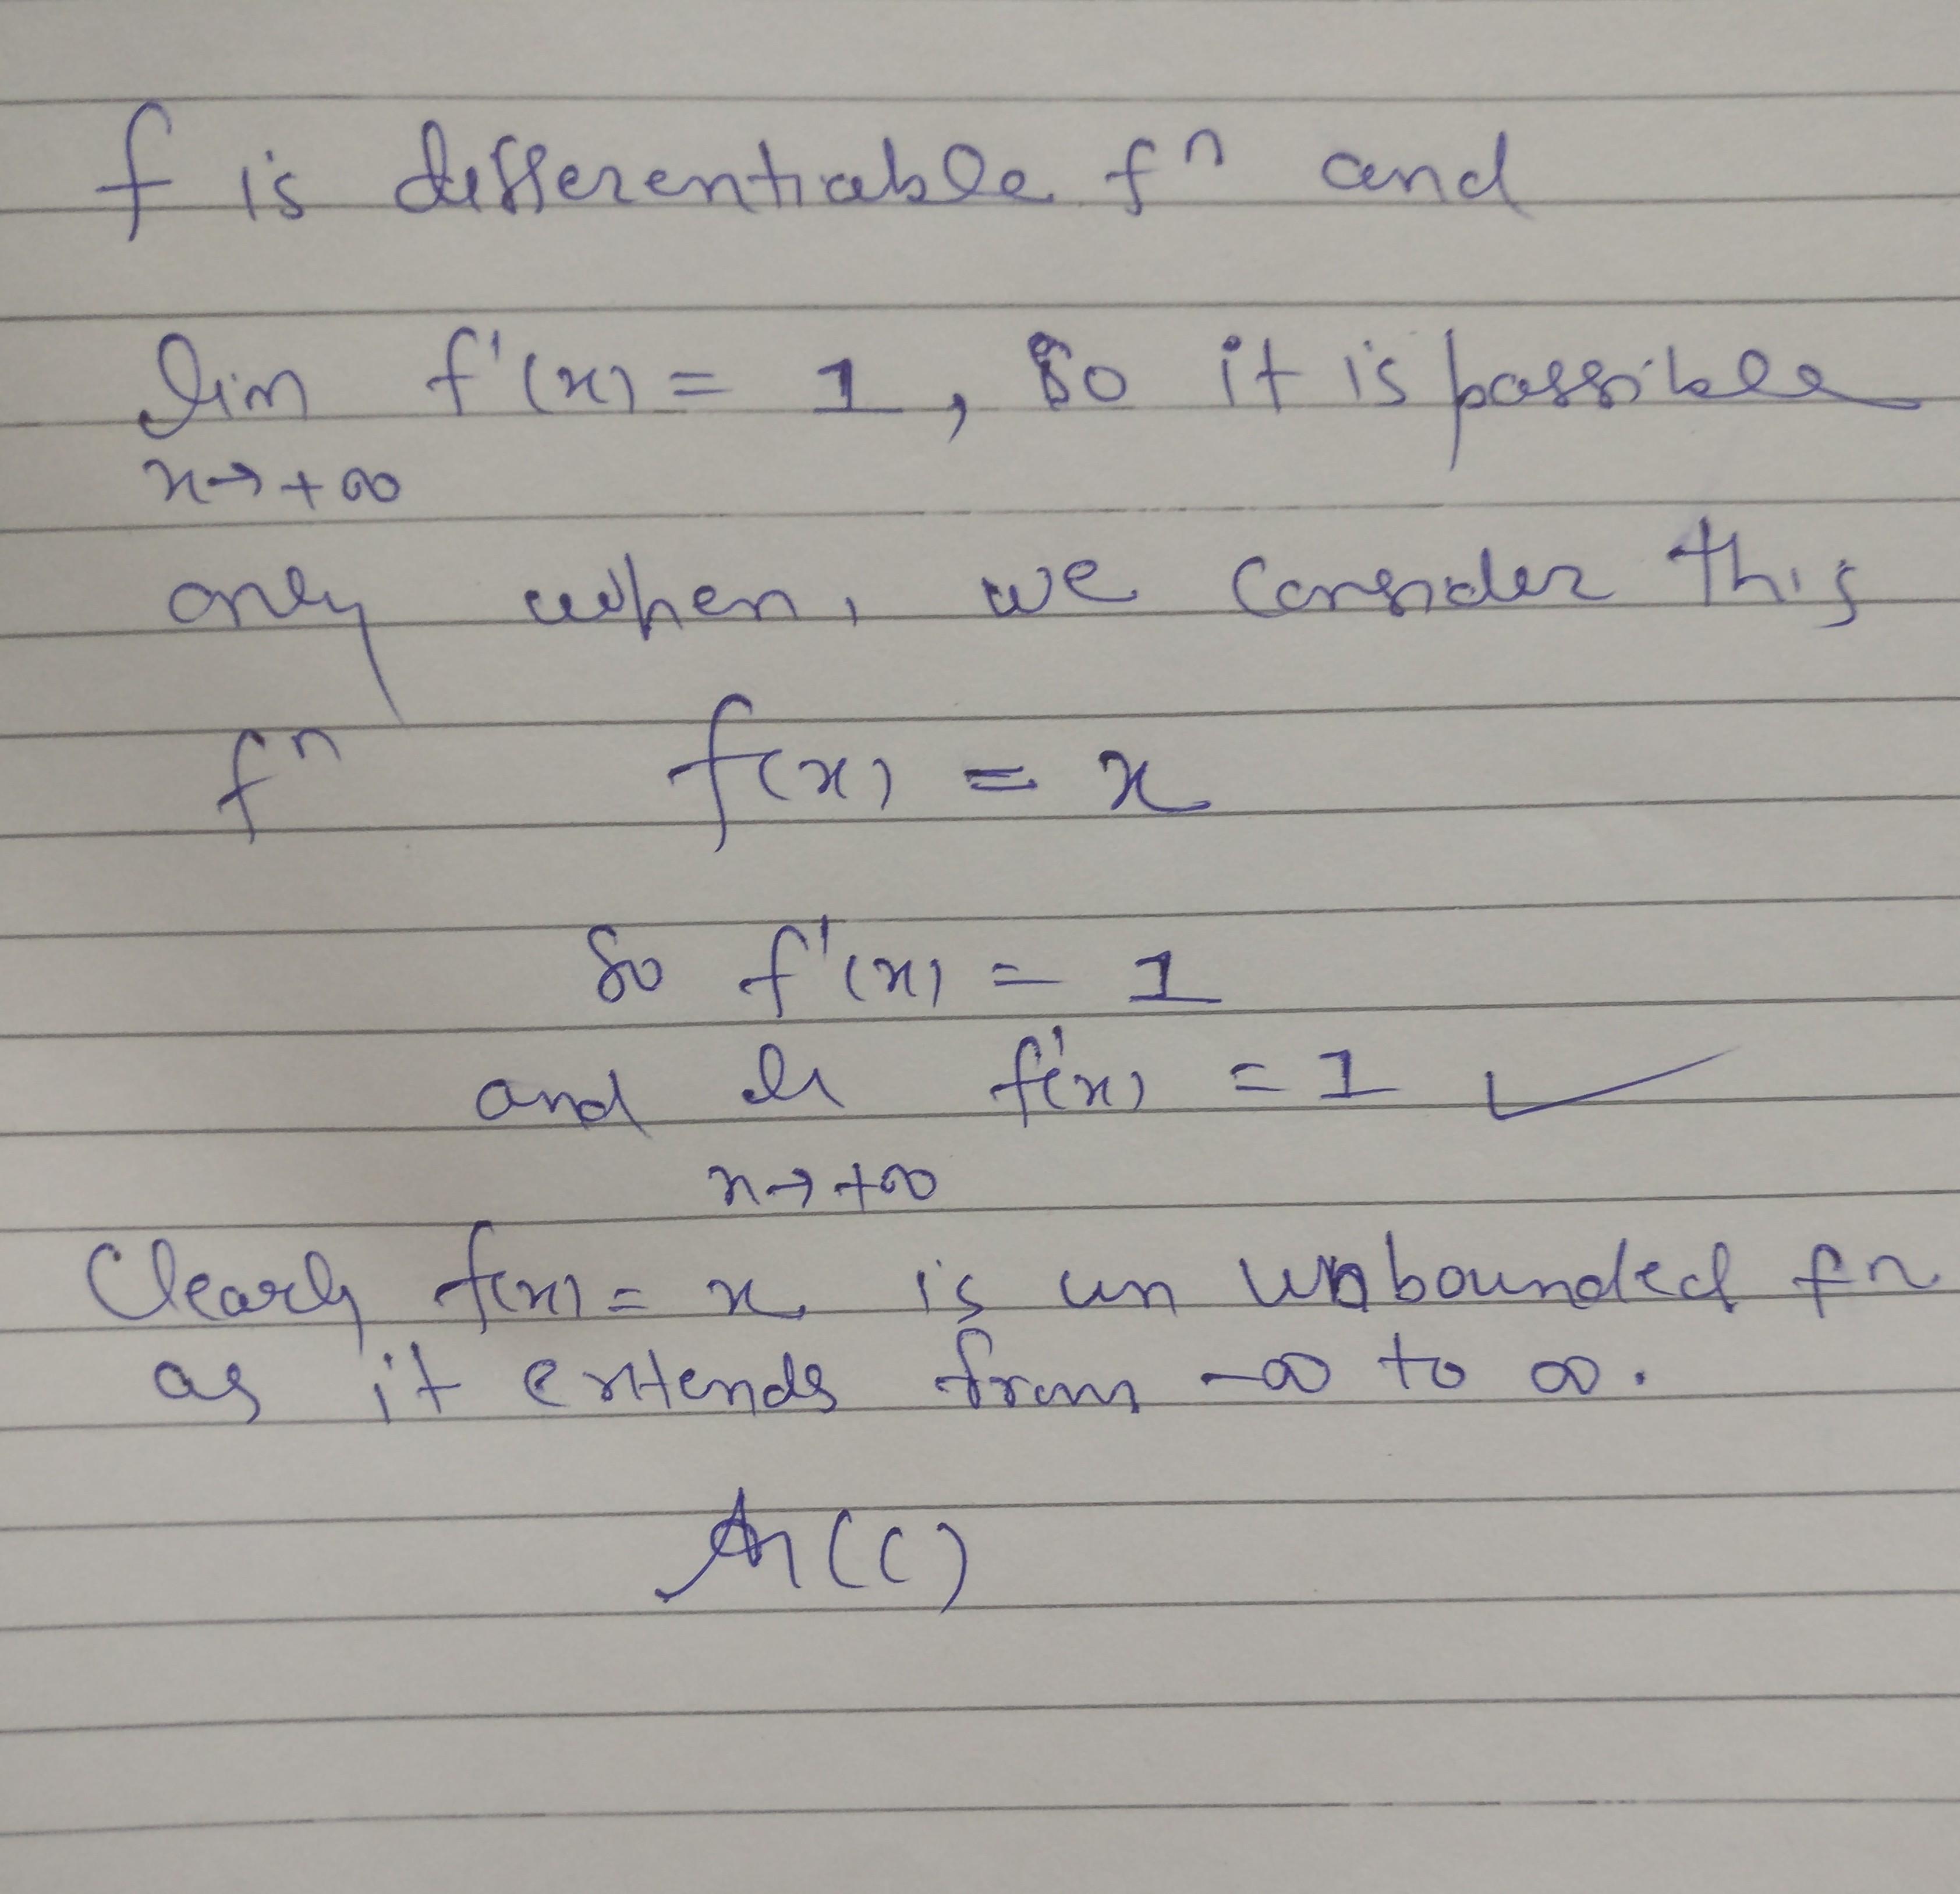 f is differentiable fⁿ and
lim f'(x) = 1, So it is possible
x→+∞
only when, we consider this
fⁿ f(x) = x
So f'(x) = 1
and lt f'(x) = 1 ✓
x→+∞
Clearly f(x) = x is un unbounded fn
as it extends from -∞ to ∞.
An (C)